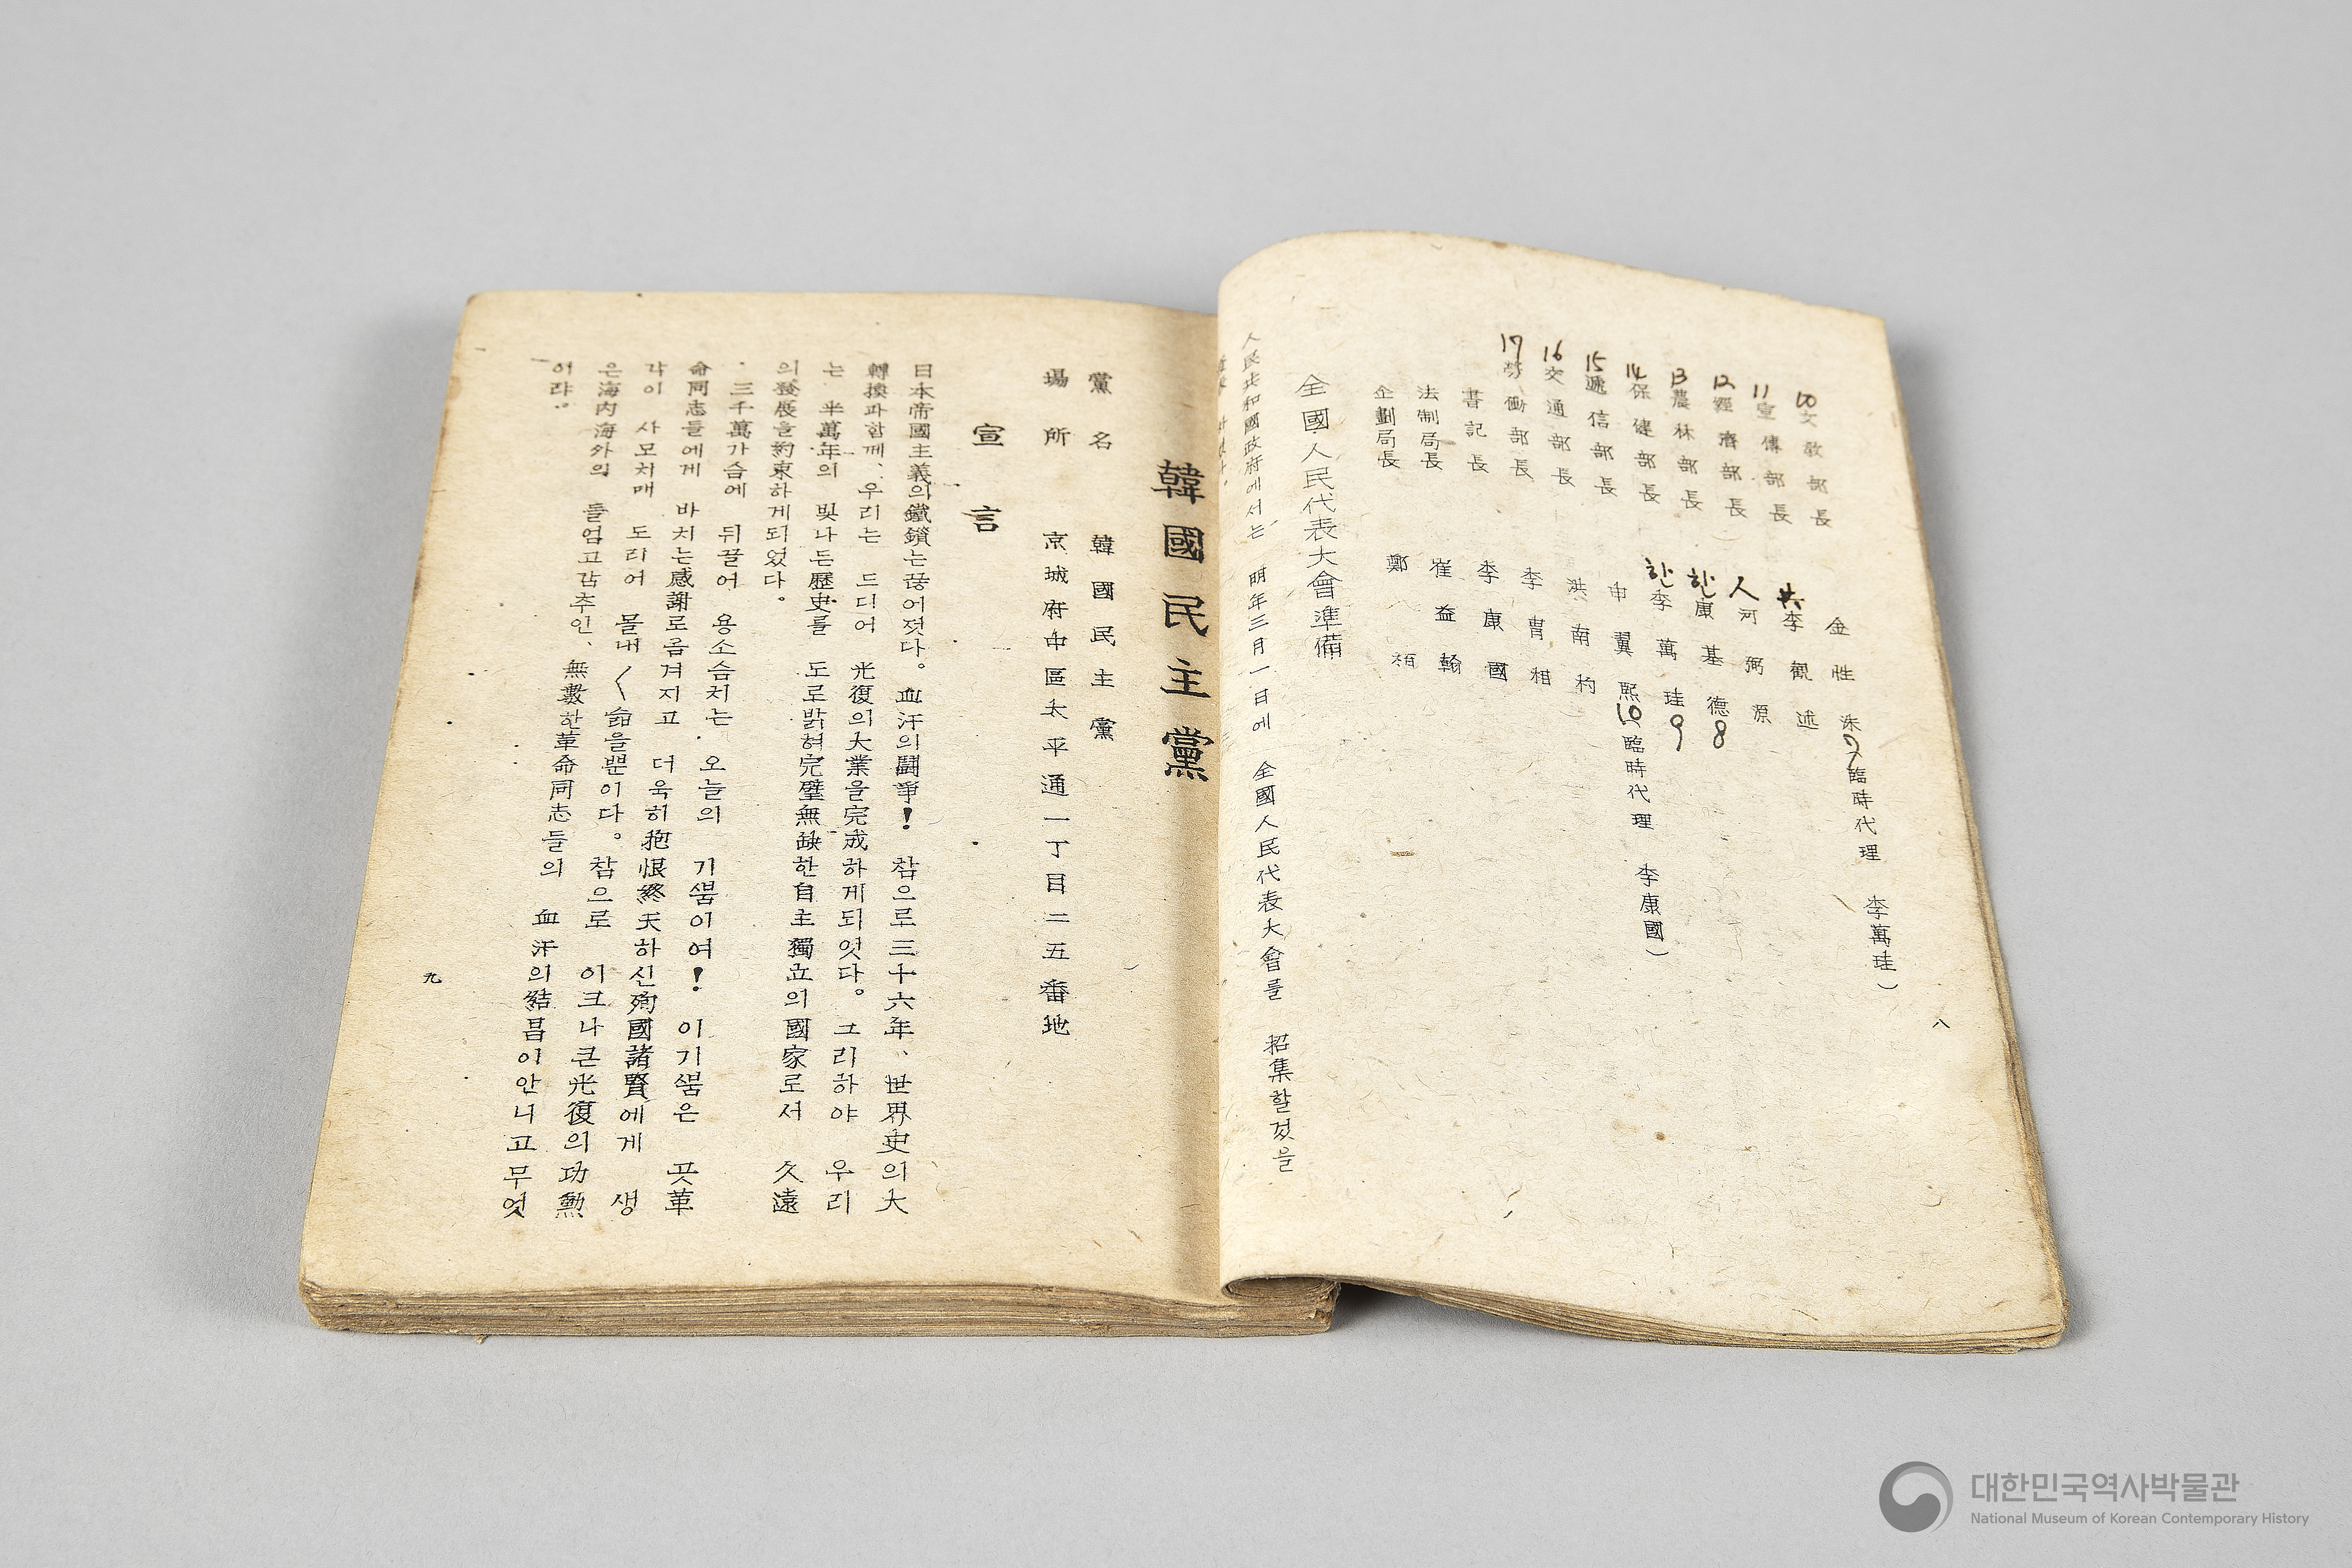 10 文敎部長 金性洙 7 臨時代理 李萬珪)
11 宣傳部長 共 李觀述
12 經濟部長 人 河弼源
13 農林部長 한 康基德 8
14 保健部長 한 李萬珪 9
15 遞信部長 申翼熙 10 臨時代理 李康國)
16 交通部長 洪南杓
17 勞働部長 李冑相
書記長 李康國
法制局長 崔益翰
企劃局長 鄭栢
全國人民代表大會準備
人民共和國政府에서는 明年三月一日에 全國人民代表大會를 招集할것을
八
韓國民主黨
黨名 韓國民主黨
場所 京城府中區太平通一丁目二五番地
宣言
日本帝國主義의鐵鎖는끊어젓다。血汗의鬪爭! 참으로三十六年、世界史의大
轉換과함께、우리는 드디어 光復의大業을完成하게되엿다。그리하야 우리
는 半萬年의 빛나든歷史를 도로밝혀完璧無缺한自主獨立의國家로서 久遠
의發展을約束하게되었다。
三千萬가슴에 뒤끌어 용소슴치는 오늘의 기쁨이여! 이기쁨은 곳革
命同志들에게 바치는感謝로옴겨지고 더욱히抱恨終天하신殉國諸賢에게 생
각이 사모처매 도리어 몰내〱 슲을뿐이다。참으로 이크나큰光復의功勳
은海內海外의 들엄고감추인、無數한革命同志들의 血汗의結晶이안니고무엇
이랴。
九
대한민국역사박물관
National Museum of Korean Contemporary History